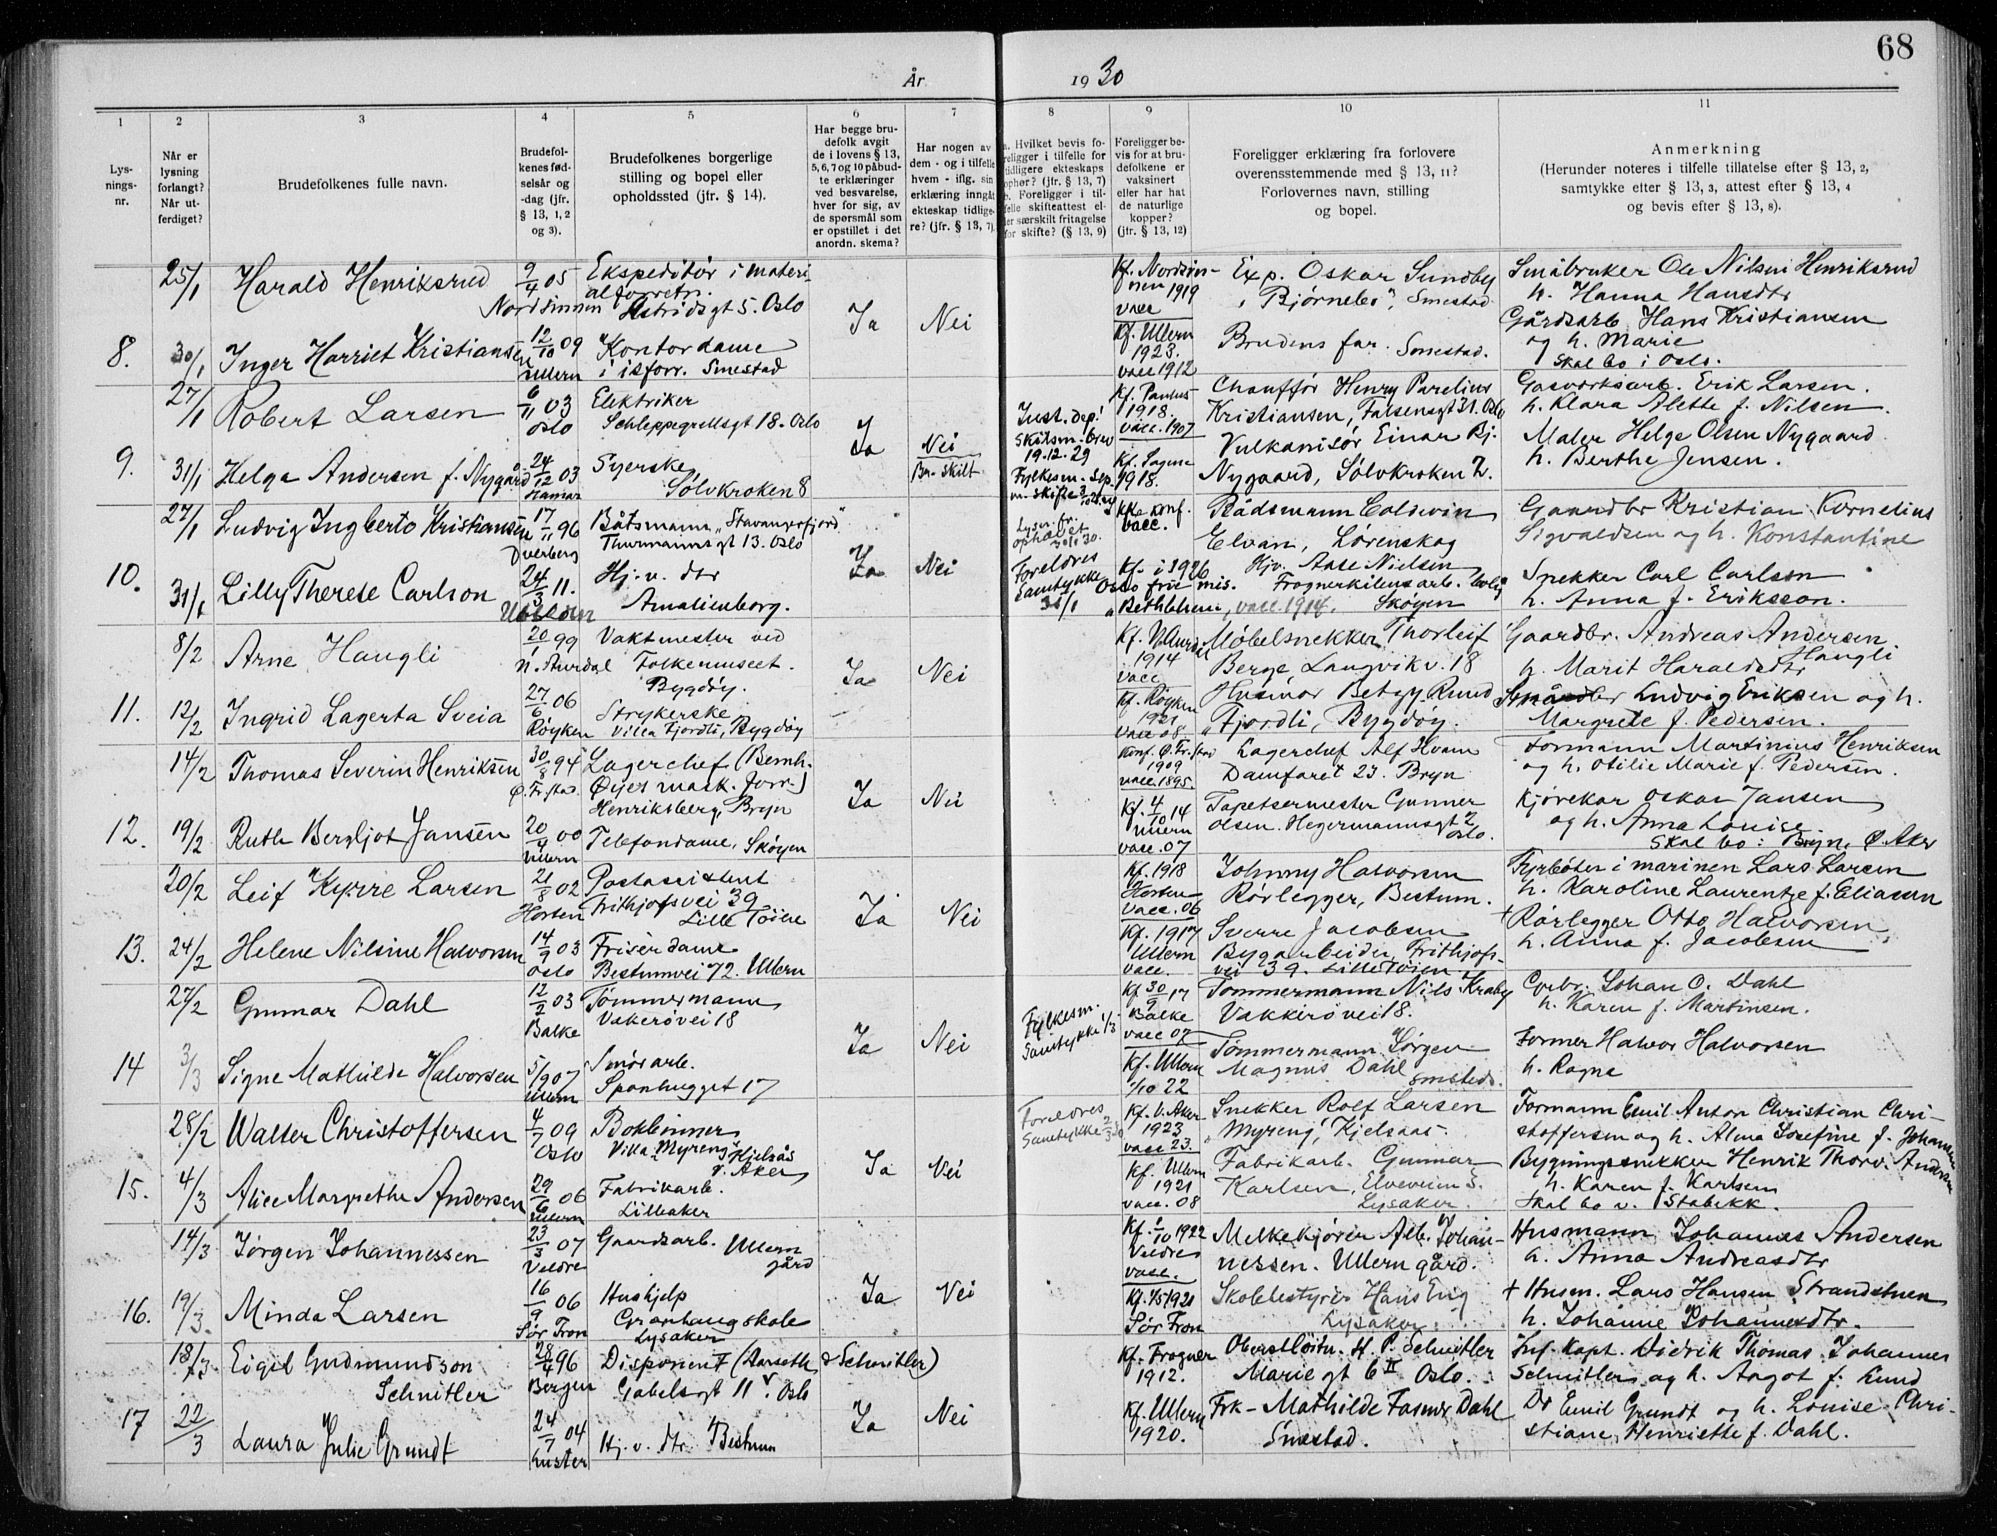 68
År 1930
1 2 3 4 5 6 7 8 9 10 11
Lys-
nings-
nr.
Når er
lysning
forlangt?
Når ut-
ferdiget?
Brudefolkenes fulle navn.
Brudefol-
kenes fød-
selsår og
-dag (jfr.
§ 13, 1, 2
og 3).
Brudefolkenes borgerlige
stilling og bopel eller
opholdssted (jfr. § 14).
Har begge bru-
defolk avgit
de i lovens § 13,
5, 6, 7 og 10 påbud-
te erklæringer
ved besvarelse,
hver for sig, av
de spørsmål som
er opstillet i det
anordn. skema?
Har nogen av
dem - og i tilfelle
hvem - iflg. sin
erklæring inngåt
ekteskap tidlige-
re? (jfr. § 13, 7).
a. Hvilket bevis fo-
religger i tilfelle for
tidligere ekteskaps
ophør? (jfr. § 13, 7)
b. Foreligger i til-
felle skifteattest el-
ler særskilt fritagelse
for skifte? (§ 13, 9)
Foreligger be-
vis for at bru-
defolkene er
vaksinert
eller har hat
de naturlige
kopper?
(jfr. § 13, 12)
Foreligger erklæring fra forlovere
overensstemmende med § 13, 11?
Forlovernes navn, stilling
og bopel.
Anmerkning
(Herunder noteres i tilfelle tillatelse efter § 13, 2,
samtykke efter § 13, 3, attest efter § 13, 4
og bevis efter § 13, 8).
8.
25/1
Harald Henriksrud
9/4 05
Nordsinnen
Ekspeditør i materi
alforretn.
Astridsgt 5. Oslo
Ja
Nei
Kf. Nordsin-
nen 1919
vacc
Exp. Oskar Sundby
"Bjørnebo", Smestad
Småbruker Ole Nilsen Henriksrud
h. Hanna Hansdtr
30/1
Inger Harriet Kristiansen
12/10 09
Ullern
Kontordame
i isforr. Smestad
Kf. Ullern
1923.
vacc 1912
Brudens far. Smestad.
Gårdsarb. Hans Kristiansen
og h. Marie
Skal bo i Oslo.
9.
27/1
Robert Larsen
6/11 03
Oslo
Elektriker
Schleppegrellsgt 18. Oslo
Ja
Nei
Br. skilt
Just. Dep!
Skilsm. brev
19.12.29
Kf. Paulus
1918.
vacc. 1907
Chauffør Henry Parelius
Kristiansen, Falsensgt 31. Oslo
Gasverksarb. Erik Larsen.
h. Klara Alette f. Nilsen
31/1
Helga Andersen f. Nygård
24/12 03
Hamar
Syerske
Sølvkroken 8
Kf. Sagene
1918.
Vulkanisør Einar Bj.
Nygaard, Sølvkroken 2.
Maler Helge Olsen Nygaard
h. Berthe Jensen.
10.
27/1
Ludvig Ingberto Kristiansen
17/11 96
Dverberg
Båtsmann "Stavangerfjord"
Thurmannsgt 13. Oslo
Ja
Nei
Lysn. fr.
ophævet
konf.
vacc.
Rådsmann Coldevin
Elvan, Lørenskog
Gaardbr Kristian Kornelius
Sigvaldsen og h. Konstantine
31/1
Lilly Therese Carlson
24/3 11.
Hj. v. dtr
Amalienborg.
Foreldres
Samtykke
31/1
Kf. i 1926
Oslo frie mis.
"Bethlehem, vacc. 1914.
Hjv. Aase Nielsen
Frognerkilens arb. bolig
Skøyen
Snekker Carl Carlson
h. Anna f. Eriksson.
11.
8/2
Arne Haugli
20/1 99
N. Aurdal
Vaktmester ved
Folkemuseet.
Bygdøy.
Ja
Nei
Kf. N. Aurdal
1914
vacc
Møbelsnekker Thorleif
Berge Langvikv. 18
Gaardbr. Andreas Andersen
Haugli
h. Marit Haraldsdtr
12/2
Ingrid Lagerta Sveia
27/6 06
Røyken
Strykerske
Villa Fjordli, Bygdøy
Kf. Røyken
1921
vacc 08
Husmor Betzy Rund
"Fjordli, Bygdøy.
Ludvig Eriksen og h.
Margrete f. Pedersen.
12.
14/2
Thomas Severin Henriksen
30/8 94
Ø. Fr.stad
Lagerchef (Bernh.
Øyes mask. forr.)
Henriksberg, Bryn
Ja
Nei
Konf. Ø. Fr.stad
1909
vacc 1895.
Lagerchef Alf Hvam
Damfaret 23. Bryn
Formann Martinius Henriksen
og h. Otilie Marie f. Pedersen.
19/2
Ruth Bergljot Jansen
20/4 00
Ullern
Telefondame, Skøyen
Kf. 4/10 14
Ullern
vacc. 07
Tapetsermester Gunnar
Olsen. Hegermannsgt 2
Oslo.
Kjørekar Oskar Jansen
og h. Anna Louise.
Skal bo: Bryn, Ø. Aker
13.
20/2
Leif Kyrre Larsen
21/8 02
Horten
Postassistent
Frithjofsvei 39
Lille Tøien
Ja
Nei
Kf. 1918
Horten
vacc. 06
Johnny Halvorsen
Rørlegger, Bestum.
Fyrbøter i marinen Lars Larsen
h. Karoline Laurentze f. Eliassen
24/2
Helene Nilsine Halvorsen
14/9 03
Oslo
Frisérdame
Bestumvei 72. Ullern
Kf. 1917
Ullern
vacc.
Sverre Jacobsen
Bygarbeider, Frithjofs-
vei 39. Lille Tøien
+ Rørlegger Otto Halvorsen
h. Anna f. Jacobsen
14
27/2
Gunnar Dahl
12/2 03
Balke
Tømmermann
Vakerøvei 18
Ja
Nei
Fylkesm.
Samtykke 1/3
Kf. 30/9 17
Balke
vacc 07
Tømmermann Nils Kraby
Vakkerøvei 18.
Johan O. Dahl
h. Karen f. Martinsen.
3/3
Signe Mathilde Halvorsen
5/9 07
Ullern
Smørarb.
Sponhugget 17
Kf. Ullern
1/10 22
Tømmermann Jørgen
Magnus Dahl
smsteds.
Former Halvor Halvorsen
h. Ragna
15.
28/2
Walter Christoffersen
4/7 09
Oslo
Bokbinner
Villa "Myreng" Kjelsås
V. Aker
Ja
Nei
Foreldres
Samtykke
Kf. V. Aker
1923
vacc 23.
Snekker Rolf Larsen
"Myreng" Kjelsaas.
Formann Emil Anton Christian Chri-
stoffersen og h. Alma Josefine f. Johansen
4/3
Alice Margrethe Andersen
29/6 06
Ullern
Fabrikarb.
Lilleaker
Kf. Ullern
1921
vacc. 08
Fabrikarb. Gunnar
Karlsen, Elveveien 5.
Lysaker.
Bygningssnekker Henrik Thorv. Andersen
h. Karen f. Karlsen
Skal bo v. Stabekk.
16.
14/3
Jørgen Johannessen
23/3 07
Veldre
Gaardsarb. Ullern
gård
Ja
Nei
Kf. 1/10 1922
Veldre
vacc.
Melkekjører Alb. Johan-
nessen. Ullern gård.
Husmann Johannes Andersen
h. Anna Andreasdtr
19/3
Minda Larsen
16/9 06
Sør Fron
Hushjelp
Granhaug skole
Lysaker
Kf. 1/5 1921
Sør Fron
Skolebestyrer Hans Eng
Lysaker.
+ Husm. Lars Hansen Strandstuen
h. Johanne Johannesdtr.
17
18/3
Eigil Gudmundson
Schnitler
28/4 96
Bergen
Disponent (Aarseth & Schnitler)
Gabelsgt 11 V. Oslo
Ja
Nei
Kf. Frogner
1912.
Oberstløitn. H. P. Schnitler
Mariegt 6 II Oslo.
Inf. Kapt. Didrik Thomas Johannes
Schnitler og h. Aagot f. Lund
22/3
Laura Julie Grundt
24/7 04
Luster
Hj. v. dtr. Bestum
Kf. Ullern
1920.
Frk. Mathilde Fasmer Dahl
Smestad.
Dr Emil Grundt og h. Louise Chri-
stiane Henriette f. Dahl.